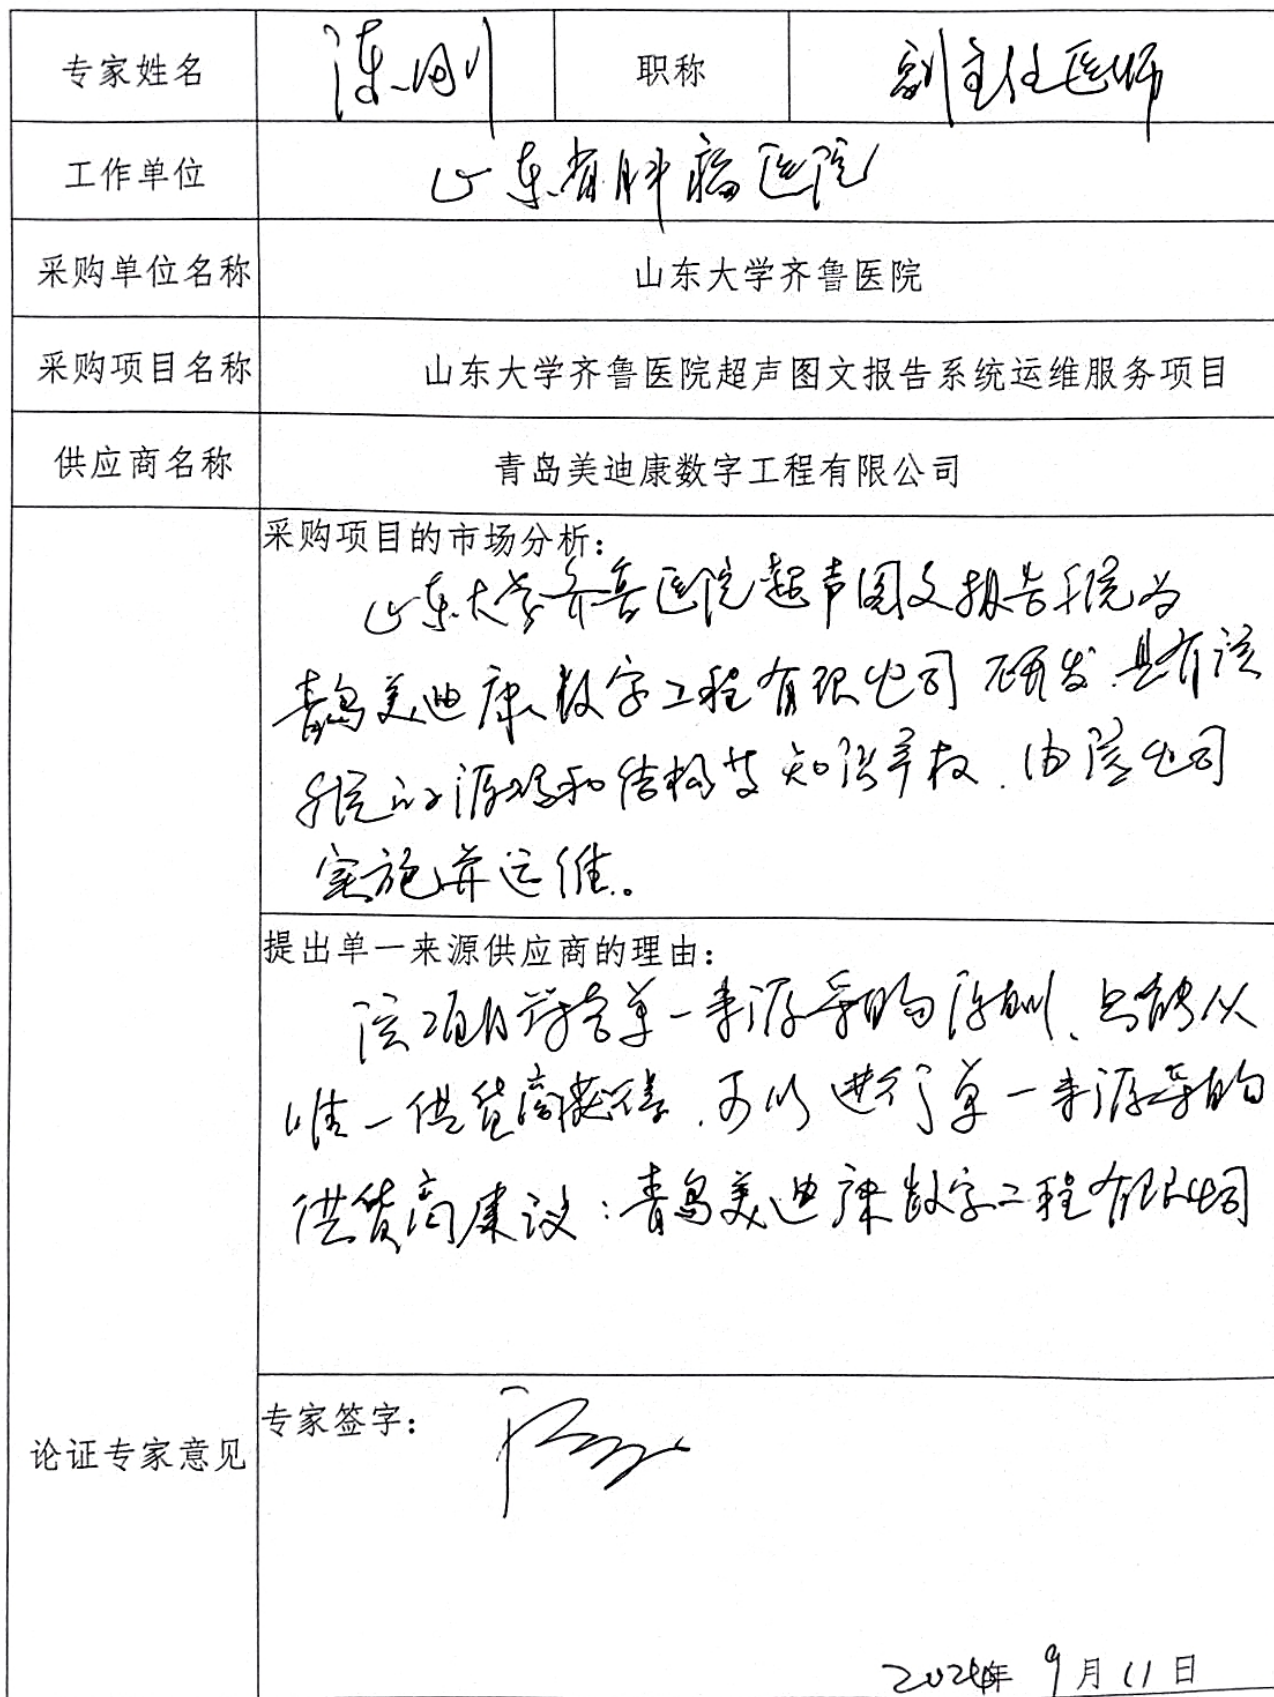 专家姓名 陈刚 职称 副主任医师
工作单位 山东省肿瘤医院
采购单位名称 山东大学齐鲁医院
采购项目名称 山东大学齐鲁医院超声图文报告系统运维服务项目
供应商名称 青岛美迪康数字工程有限公司
采购项目的市场分析：
山东大学齐鲁医院超声图文报告系统为
青岛美迪康数字工程有限公司研发,具有该
系统的源码和结构等知识产权.由该公司
实施并运维。
提出单一来源供应商的理由：
该项目符合单一来源采购原则、只能从
唯一供货商获得,可以进行单一来源采购
供货商建议:青岛美迪康数字工程有限公司
论证专家意见
专家签字：
2024年 9月11日